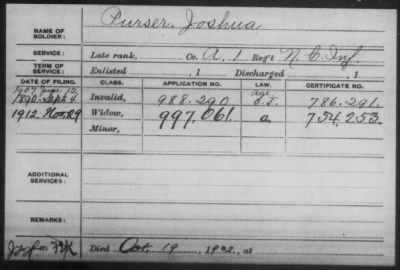 NAME OF SOLDIER: Purser, Joshua
SERVICE: Late rank, Co. A, 1 Reg't N.C. Inf.
TERM OF SERVICE: Enlisted , 1 Discharged , 1
DATE OF FILING. CLASS. APPLICATION NO. LAW. CERTIFICATE NO.
1907 June 12 Age
1890 Sept 4 Invalid, 988.290 O.I. 786.291.
1912 Nov 29 Widow, 997,061 a 754,253.
Minor,
ADDITIONAL SERVICES:
REMARKS:
Died Oct. 19, 1902, at